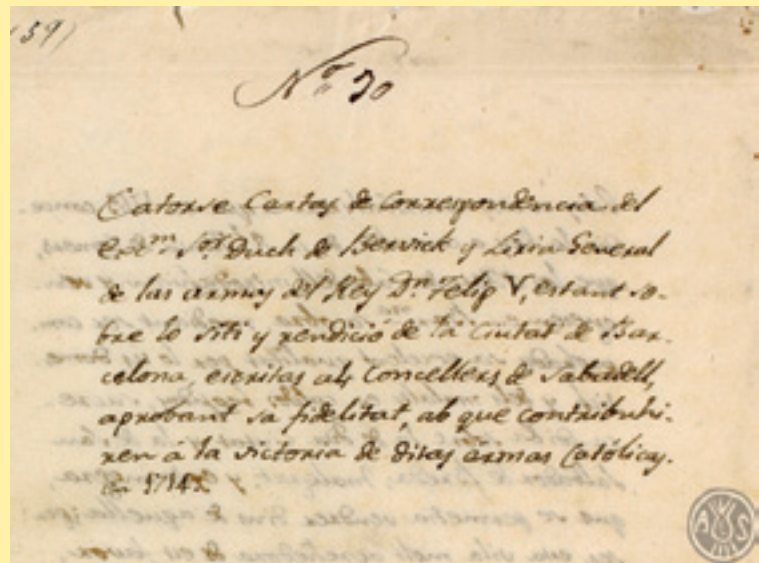 (59)
Nº 30
Catorse Cartas de Correspondencia del
Exᵐ. Sᵒʳ. Duch de Bervick y Liria General
de las armas del Rey Dⁿ. Felip V, estant so-
bre lo siti y rendició de la Ciutat de Bar-
celona, escritas als Concellers de Sabadell,
aprobant sa fidelitat, ab que contribuhi-
ren á la victoria de ditas armas Católicas.
En 1714
AHS